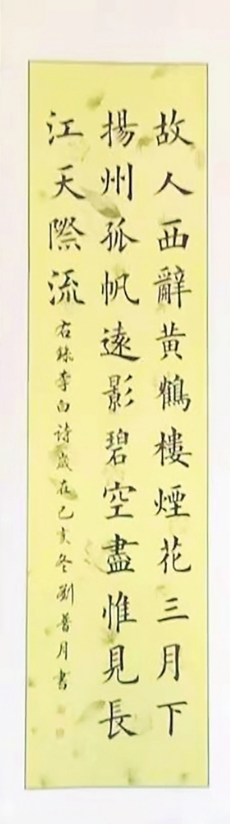 故人西辭黃鶴樓煙花三月下
揚州孤帆遠影碧空盡惟見長
江天際流
右錄李白詩歲在己亥冬劉普月書